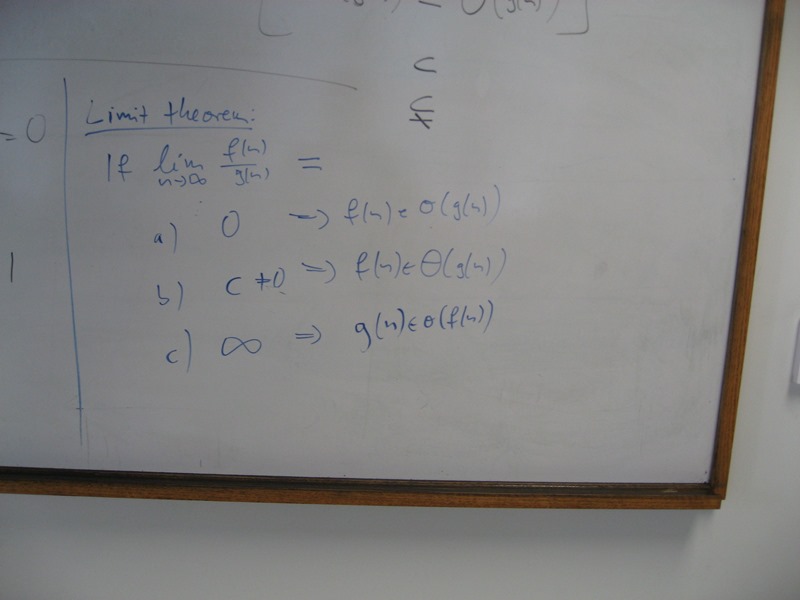 O(g(n)) ]
⊂
⊊
= 0
Limit theorem:
If lim n→∞ f(n)/g(n) =
a) 0 => f(n) ∈ o(g(n))
1
b) c ≠ 0 => f(n) ∈ Θ(g(n))
c) ∞ => g(n) ∈ o(f(n))